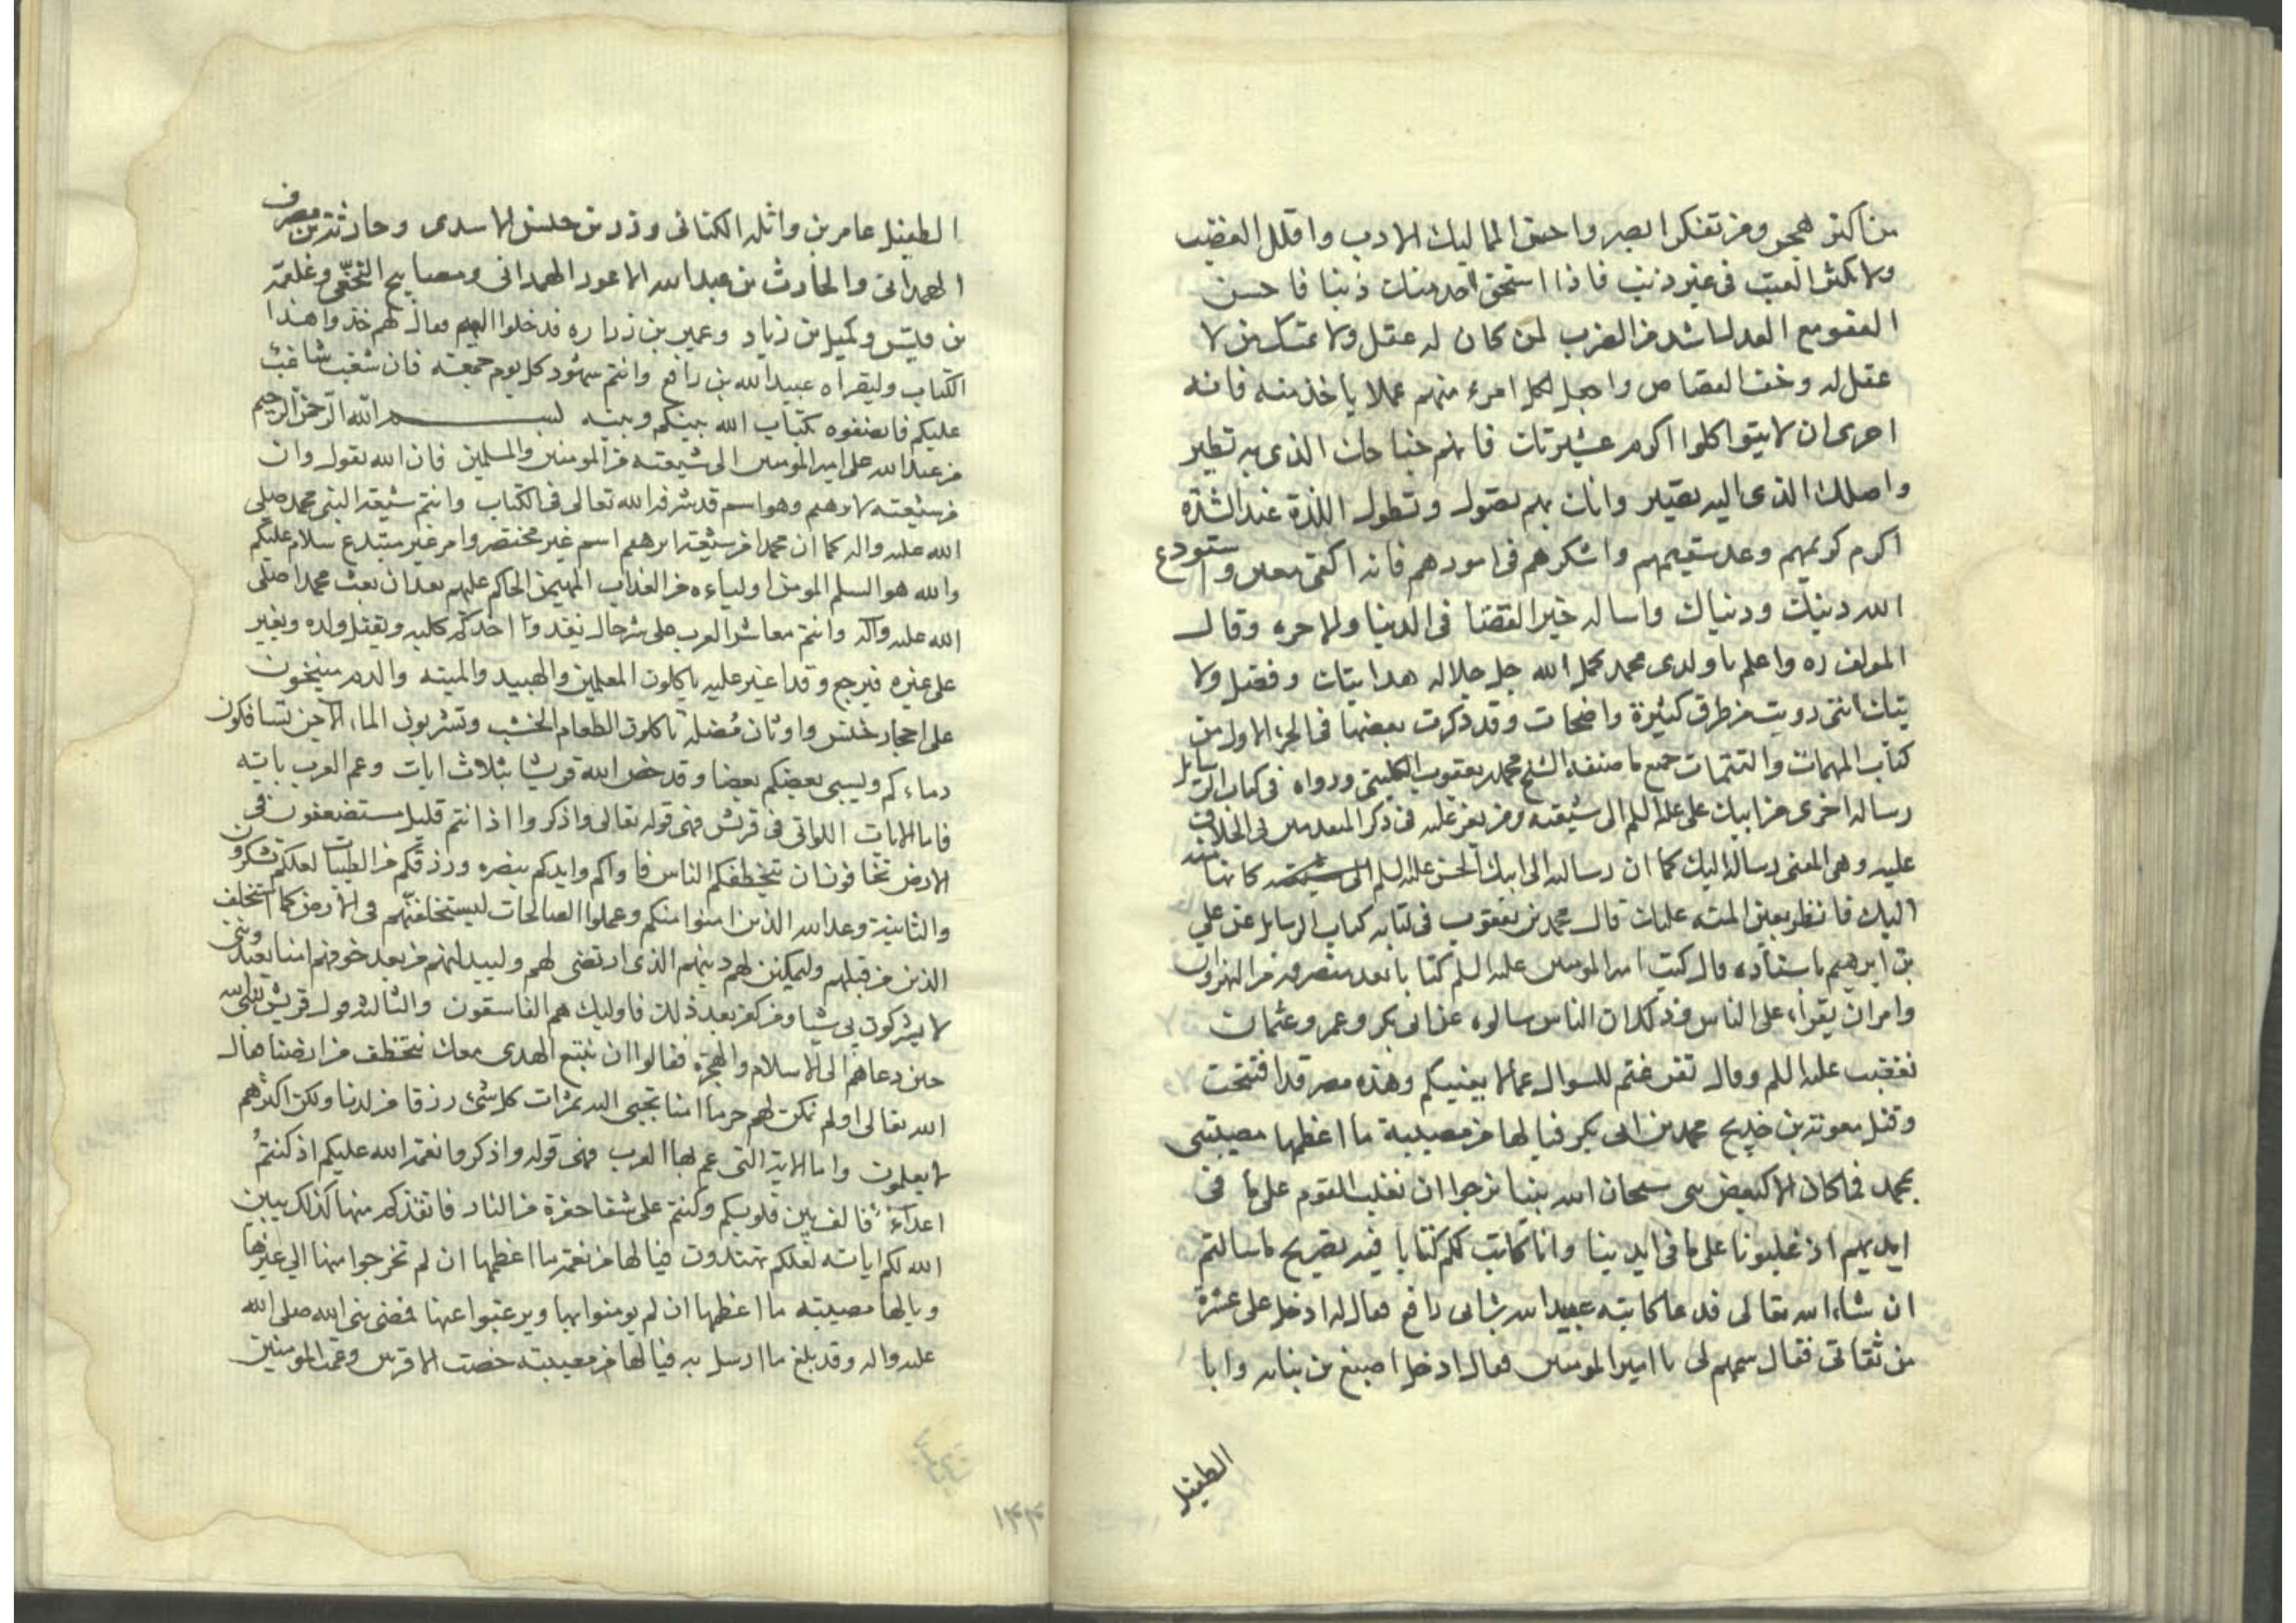 من اكثر هجر ومن تفكر ابصر واحسن المماليك الادب واقلل الغضب
ولا تكثر العتب فى غير ذنب فاذا استحق احد منك ذنبا فاحسن
العفو مع العدل اشد من الضرب لمن كان له عقل ولا تمسك من لا
عقل له وخف القصاص واجعل لكل امرء منهم عملا ياخذ منه فانه
احرى ان لا يتواكلوا اكرم عشيرتك فانهم جناحك الذى به تطير
واصلك الذى اليه تصير وانك بهم تصول وتطول اللذة عند الشدة
اكرم كريمهم وعد سقيمهم واشركهم فى امورهم فانه اكفى معين واستودع
الله دينك ودنياك واساله خير القضا فى الدنيا والاخره وقال
المولف ره واعلم يا ولدى محمد كمل الله جل جلاله هدايتك وفضل ولا
يتك اننى رويت من طرق كثيرة واضحات وقد ذكرت بعضها فى الجزء الاول من
كتاب المهمات والتتمات جميع ما صنفه الشيخ محمد بن يعقوب الكلينى ورواه فى كتاب الرسايل
رساله اخرى من ابيك على عليه السلم الى شيعته ومن يعز عليه فى ذكر المتقدمين فى الخلافه
عليه وهى المعنى رسالة اليك كما ان رسالته الى ابيك الحسن عليه السلم الى شيعته كانها منه
اليك فانظر بعين المنه عليك قال محمد بن يعقوب فى كتابه كتاب الرسايل عن علي
بن ابرهيم باسناده قال كتب امير المومنين عليه السلم كتابا بعد منصرفه من النهروان
وامر ان يقرأ على الناس وذلك ان الناس سالوه عن ابى بكر وعمر وعثمان
فغضب عليه السلم وقال تفرغتم للسوال عما لا يعنيكم وهذه مصر قد افتتحت
وقتل معوية بن خديج محمد بن ابى بكر فيا لها من مصيبة ما اعظمها مصيبتى
بمحمد فما كان الا كبعض بنى سبحان الله بينا نرجوا ان نغلب القوم على ما فى
ايديهم اذ غلبونا على ما فى ايدينا وانا كاتب لكم كتابا فيه تصريح ما سالتم
ان شاء الله تعالى فدعا كاتبه عبيد الله بن ابى رافع فقال له ادخل على عشرة
من ثقاتى فقال سمهم لى يا امير المومنين فقال ادخل اصبغ بن نباته وابا
الطفيل
الطفيل عامر بن واثله الكنانى وزر بن حبيش الاسدى وحارثة بن مصرف
الهمدانى والحارث بن عبد الله الاعور الهمدانى ومصابيح النخعى وعلقمة
بن قيس وكميل بن زياد وعمير بن زراره فدخلوا اليه فقال لهم خذوا هذا
الكتاب وليقراه عبيد الله بن رافع وانتم شهود كل يوم جمعته فان شغب شاغب
عليكم فانصفوه بكتاب الله بينكم وبينه بسم الله الرحمن الرحيم
من عبد الله على امير المومنين الى شيعته من المومنين والمسلمين فان الله يقول وان
من شيعته لابرهيم وهو اسم قد شرفه الله تعالى فى الكتاب وانتم شيعة النبى محمد صلى
الله عليه واله كما ان محمدا من شيعة ابرهيم اسم غير مختصر وامر غير مبتدع سلام عليكم
والله هو السلم المومن اولياءه من العذاب المهيمن الحاكم عليهم بعد ان بعث محمدا صلى
الله عليه وآله وانتم معاشر العرب على شر حال يغدوا احدكم كلبه ويقتل ولده ويغير
على غيره فيرجع وقد اغير عليه ياكلون المعلهز والهبيد والميته والدم منيخون
على احجار خشن واوثان مُضله تاكلون الطعام الخشب وتشربون الماء الآجن تسافكون
دماءكم ويسبى بعضكم بعضا وقد خص الله قريشا بثلاث ايات وعم العرب باية
فاما الايات اللواتى فى قريش فهى قوله تعالى واذكروا اذ انتم قليل مستضعفون فى
الارض تخافون ان يتخطفكم الناس فاواكم وايدكم بنصره ورزقكم من الطيبات لعلكم تشكرون
والثانية وعد الله الذين امنوا منكم وعملوا الصالحات ليستخلفنهم فى الارض كما استخلف
الذين من قبلهم وليمكنن لهم دينهم الذى ارتضى لهم وليبدلنهم من بعد خوفهم امنا يعبدوننى
لا يشركون بى شيا ومن كفر بعد ذلك فاوليك هم الفاسقون والثالثه قول قريش لنبى الله
حين دعاهم الى الاسلام والهجرة فقالوا ان نتبع الهدى معك نتخطف من ارضنا فقال
الله تعالى اولم نمكن لهم حرما امنا تجبى اليه ثمرات كل شئ رزقا من لدنا ولكن اكثرهم
لا يعلمون واما الاية التى عم بها العرب فهى قوله واذكروا نعمة الله عليكم اذ كنتم
اعداء فالف بين قلوبكم وكنتم على شفا حفرة من النار فانقذكم منها كذلك يبين
الله لكم اياته لعلكم تهتدون فيا لها من نعمة ما اعظمها ان لم تخرجوا منها الي غيرها
ويا لها مصيبته ما اعظمها ان لم يومنوا بها ويرغبوا عنها فمضى نبى الله صلى الله
عليه واله وقد بلغ ما ارسل به فيا لها من مصيبته خصت الاقربين وعمت المومنين
١٣٣